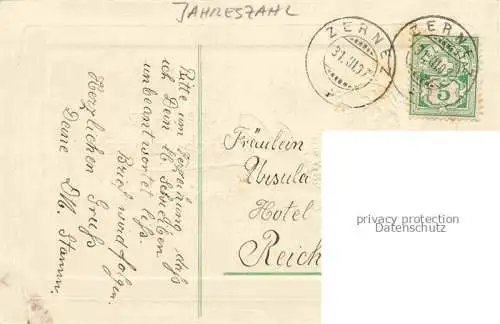 JAHRESZAHL
ZERNEZ
31.III.07
ZERNEZ
5
Bitte um Verzeihung, daß
ich Dein lb. Schreiben
unbeantwortet ließ.
Brief wird folgen.
Herzlichen Gruß
Deine
Fräulein
Ursula
Hotel
Reich
privacy protection
Datenschutz